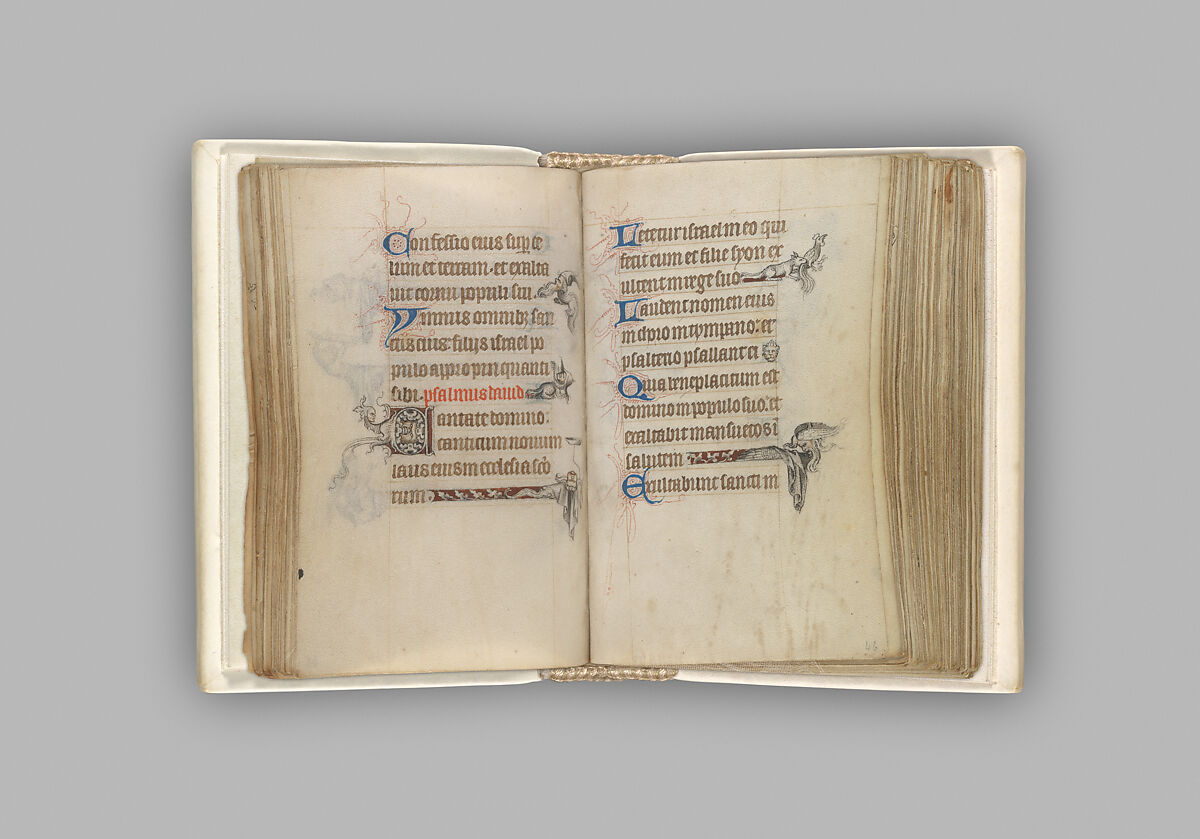 Confessio eius sup ce
lum et terram. et exalta
uit cornu populi sui.
Ymnus omnibz san
ctis eius: filijs israel po
pulo appropinquanti
sibi. psalmus dauid
Cantate domino:
canticum nouum
laus eius in ecclesia sco
rum.
Letetur israel in eo qui
fecit eum et filie syon ex
ultent in rege suo
Laudent nomen eius
in choro in tympano: et
psalterio psallant ei
Quia beneplacitum est
domino in populo suo: et
exaltabit mansuetos i
salutem
Exultabunt sancti in
46